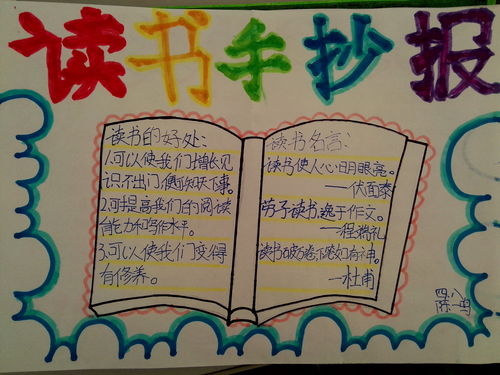 读书手抄报
读书的好处:
1.可以使我们增长见
识,不出门,便知天下事。
2.可提高我们的阅读
能力和写作水平。
3.可以使我们变得
有修养。
读书名言:
读书使人心明眼亮。
——伏尔泰
劳于读书,逸于作文。
——程端礼
读书破万卷,下笔如有神。
—杜甫
四、八
陈一鸣